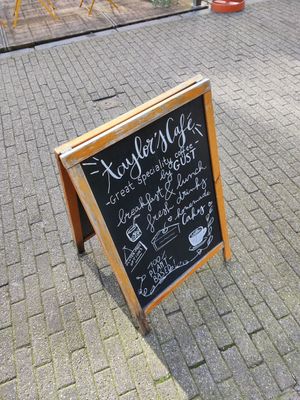 Taylor's Café
- Great Speciality coffee -
by GUST
breakfast & lunch
fresh drinks
homemade
cakes
100%
PLANT
BASED!